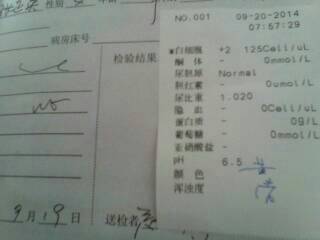 性别
病房床号
检验结果
9月19日
送检者
NO.001 09-20-2014
07:57:29
*白细胞 +2 125Cell/uL
酮体 - 0mmol/L
尿胆原 Normal
胆红素 - 0umol/L
尿比重 1.020
隐血 - 0Cell/uL
蛋白质 - 0g/L
葡萄糖 - 0mmol/L
亚硝酸盐 -
pH 6.5
颜色
浑浊度